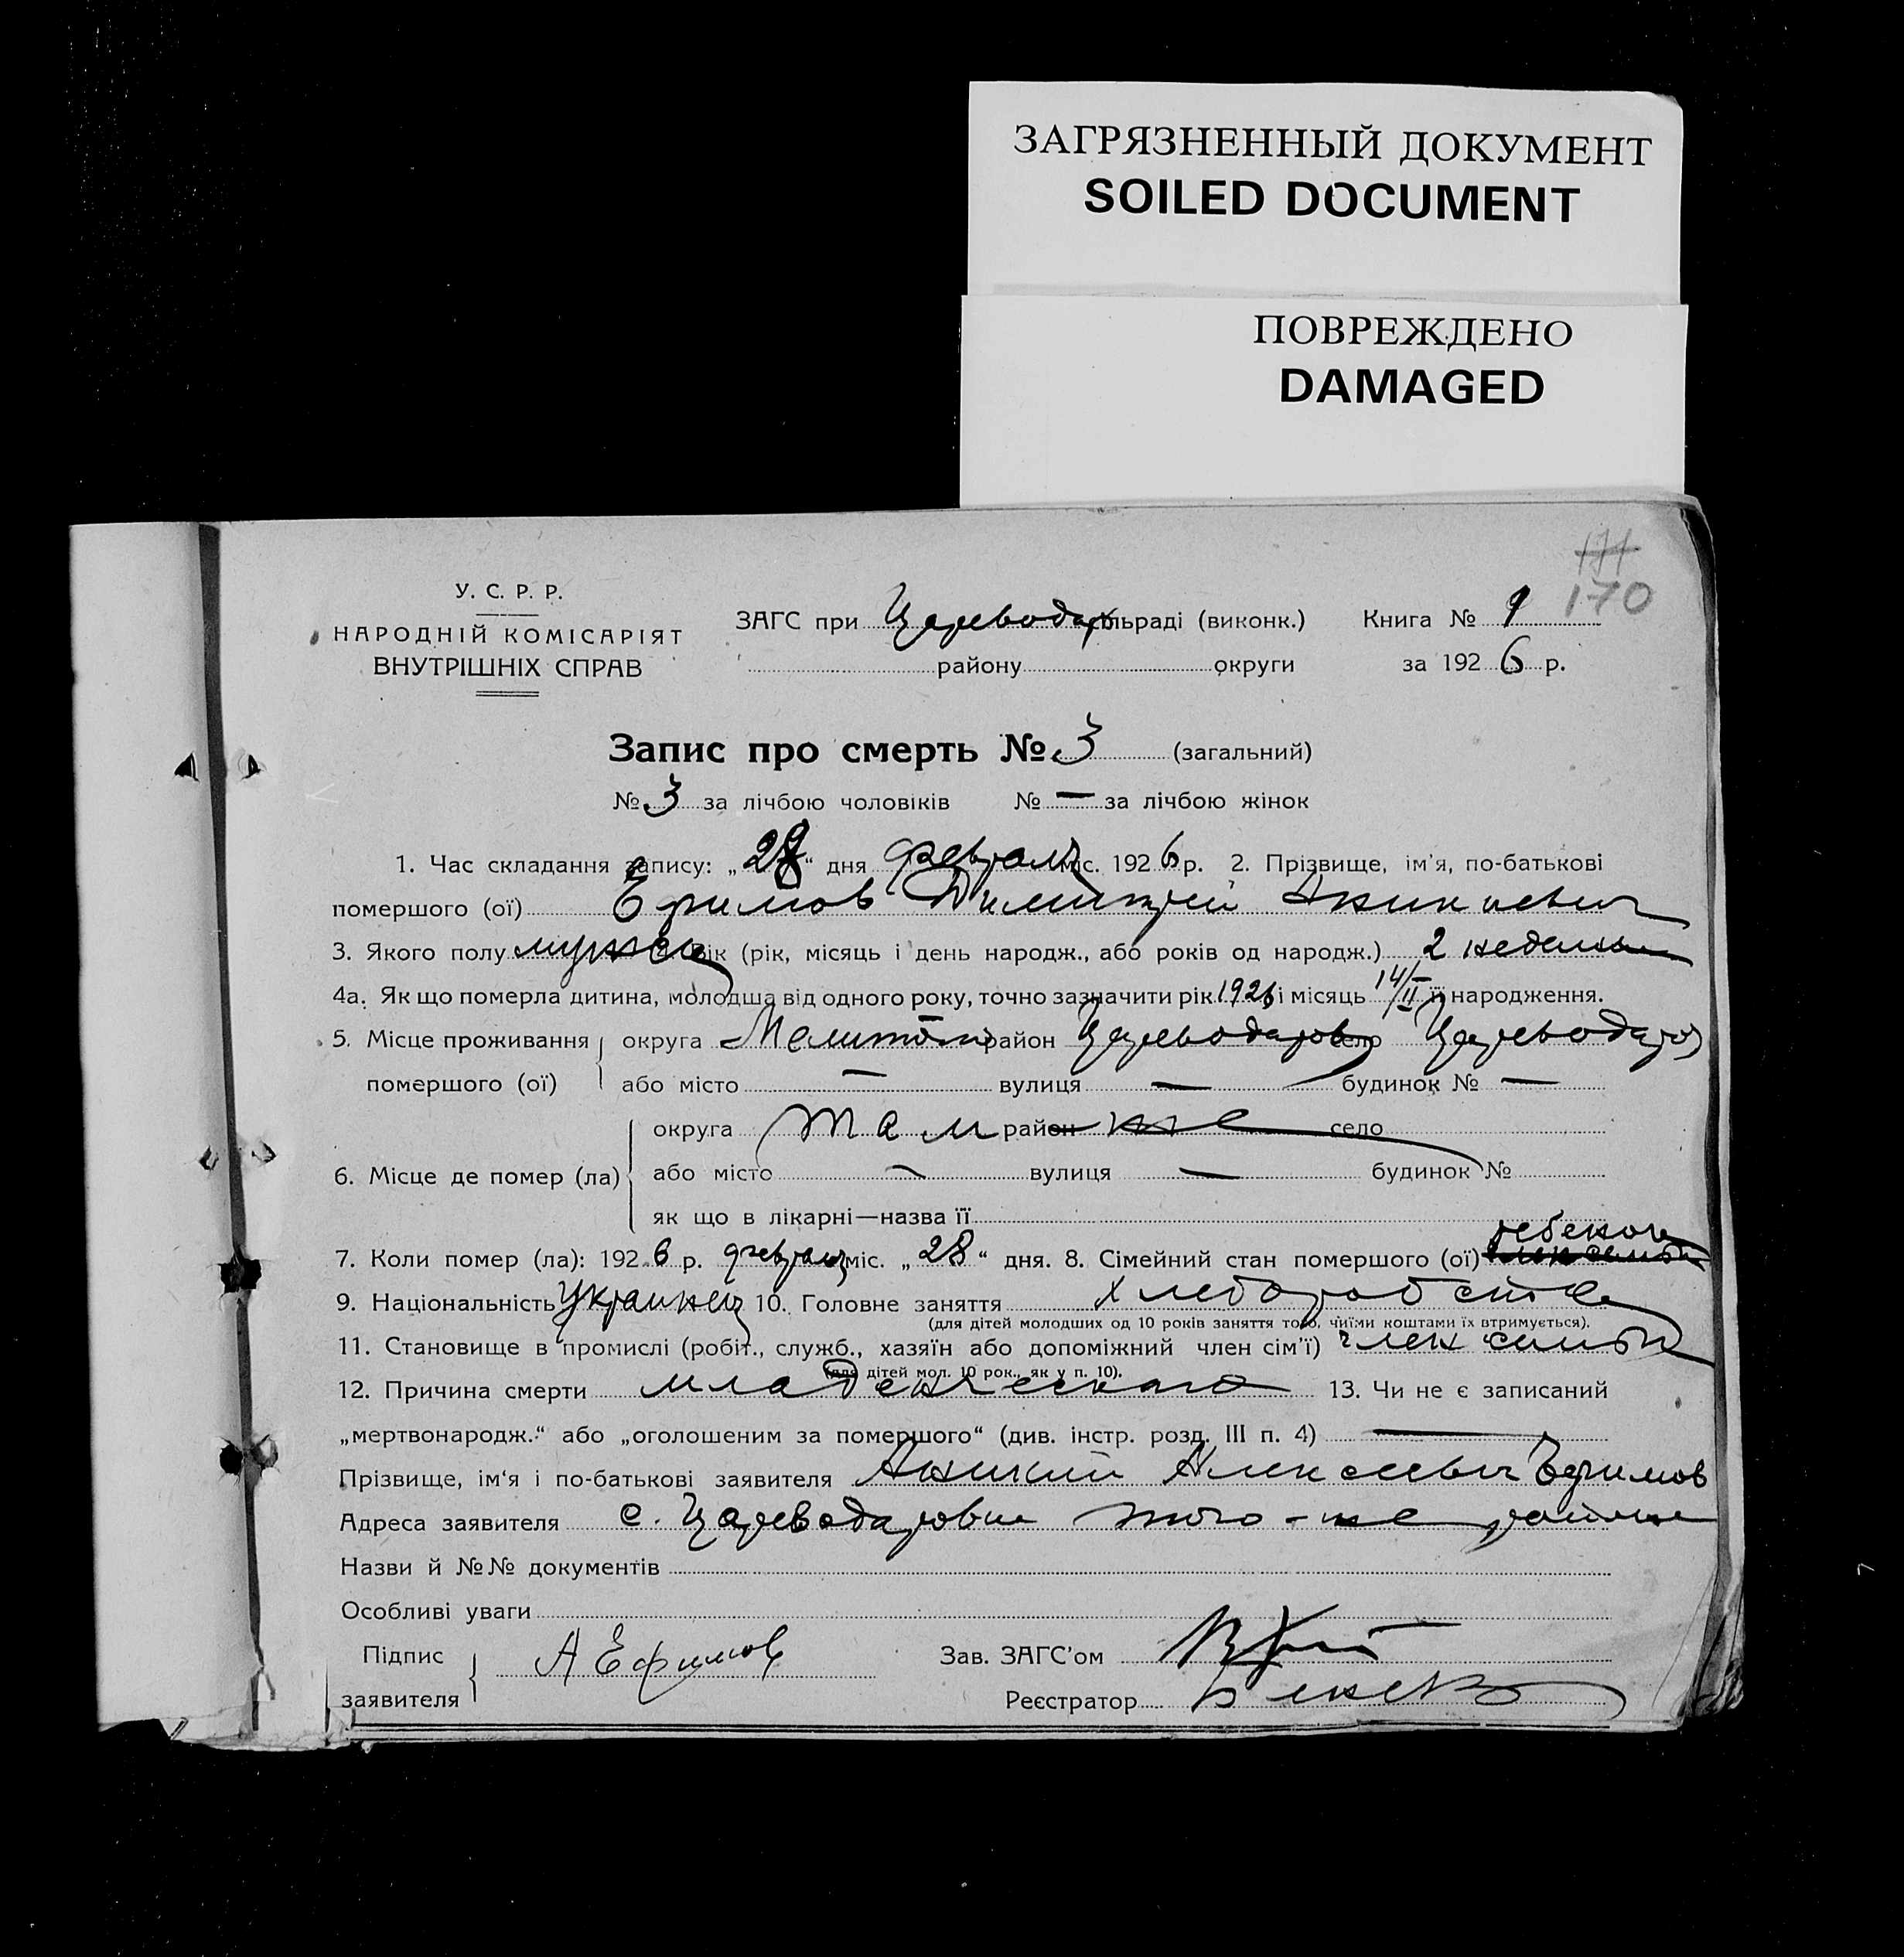 ЗАГРЯЗНЕННЫЙ ДОКУМЕНТ
SOILED DOCUMENT
ПОВРЕЖДЕНО
DAMAGED
171
170
У. С. Р. Р.
НАРОДНІЙ КОМІСАРІЯТ
ВНУТРІШНІХ СПРАВ
ЗАГС при Цареводар сільраді (виконк.) Книга № 1
району округи за 1926 р.
Запис про смерть № 3 (загальний)
№ 3 за лічбою чоловіків № — за лічбою жінок
1. Час складання запису: „28“ дня февраля міс. 1926 р. 2. Прізвище, ім'я, по-батькові
помершого (ої) Ефимов Димитрий Аникиевич
3. Якого полу мужск 4. Вік (рік, місяць і день народж., або років од народж.) 2 недели
4а. Як що померла дитина, молодша від одного року, точно зазначити рік 1926 і місяць 14/II її народження.
5. Місце проживання округа Мелитоп район Цареводаров село Цареводаров
помершого (ої) або місто — вулиця — будинок № —
округа там район же село
6. Місце де помер (ла) або місто — вулиця — будинок №
як що в лікарні—назва її
7. Коли помер (ла): 1926 р. февраля міс. „28“ дня. 8. Сімейний стан помершого (ої) ребенок
9. Національність Украинец 10. Головне заняття хлеборобство
(для дітей молодших од 10 років заняття того, чиїми коштами їх втримується).
11. Становище в промислі (робіт., служб., хазяїн або допоміжний член сім'ї) член семьи
(для дітей мол. 10 рок., як у п. 10).
12. Причина смерти младенческая 13. Чи не є записаний
„мертвонародж.“ або „оголошеним за помершого“ (див. інстр. розд. III п. 4) —
Прізвище, ім'я і по-батькові заявителя Аникий Алексеевич Ефимов
Адреса заявителя с. Цареводаровка того-же района
Назви й №№ документів
Особливі уваги
Підпис заявителя А Ефимов Зав. ЗАГС'ом
Реєстратор